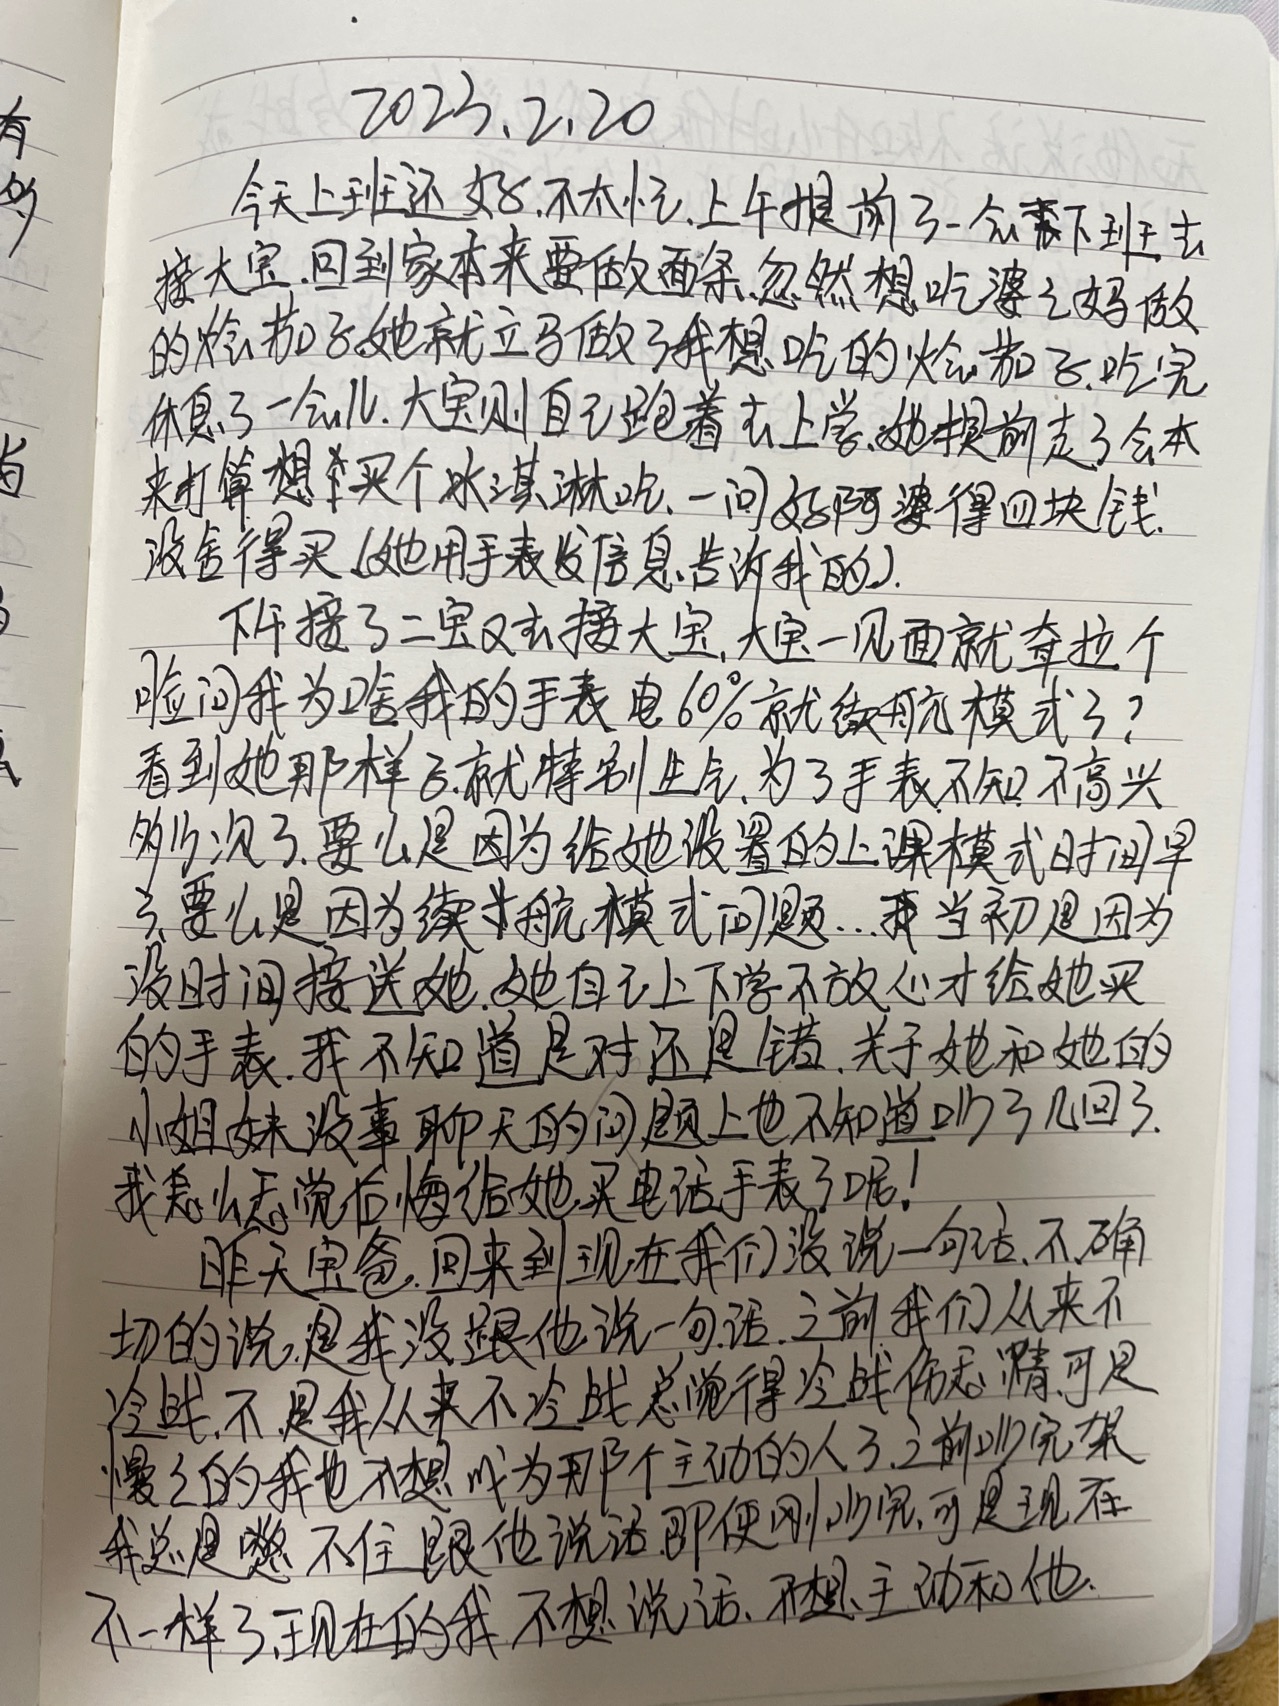 2023.2.20
今天上班还好.不太忙.上午提前了一会下班去
接大宝.回到家本来要做面条.忽然想吃婆之妈做
的烩茄子.她就立马做了我想吃的烩茄子.吃完
休息了一会儿.大宝则自己跑着去上学.她提前走了会本
来打算想买个冰淇淋吃.一问好阿婆得四块钱.
没舍得买.(她用手表发信息告诉我的).
下午接了二宝又去接大宝,大宝一见面就耷拉个
脸问我为啥我的手表电60%就续航模式了?
看到她那样子.就特别生气.为了手表.不知不高兴
多少次了.要么是因为给她设置的上课模式时间早
了.要么是因为续航模式问题...我当初是因为
没时间接送她.她自己上下学不放心才给她买
的手表.我不知道是对还是错.关于她和她的
小姐妹没事聊天的问题上也不知道吵了几回了.
我怎么感觉后悔给她买电话手表了呢!
昨天宝爸.回来到现在我们没说一句话.不.确
切的说,是我没跟他说一句话.之前我们从来不
冷战.不.是我从来不冷战总觉得冷战伤感情.可是
慢之的我也不想成为那个主动的人了.之前吵完架
我总是憋不住跟他说话.即使刚吵完.可是现在
不一样了.现在的我不想说话.不想主动和他.
有
多